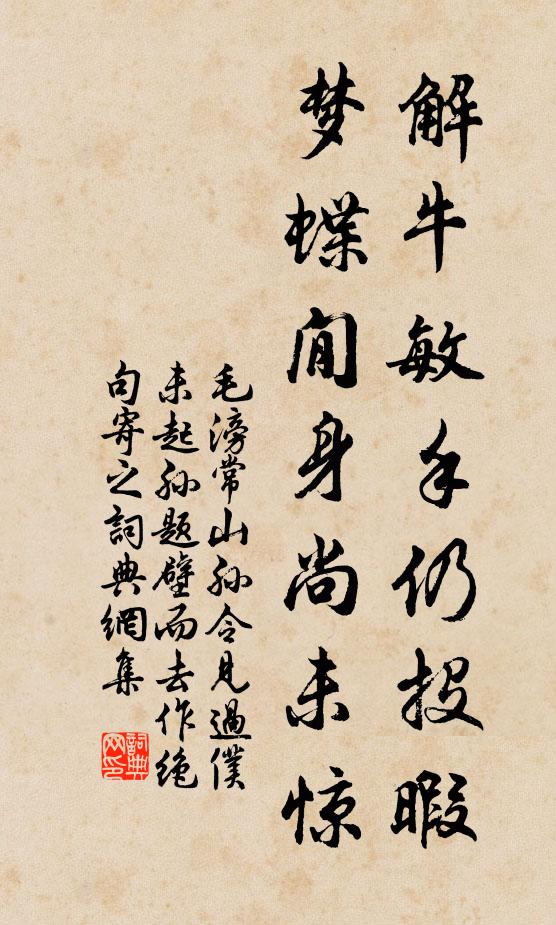 解牛敏手仍投暇
梦蝶间身尚未惊
毛滂常山孙令见过仆
未起孙题壁而去作绝
句寄之詞典網集
詞典
网印